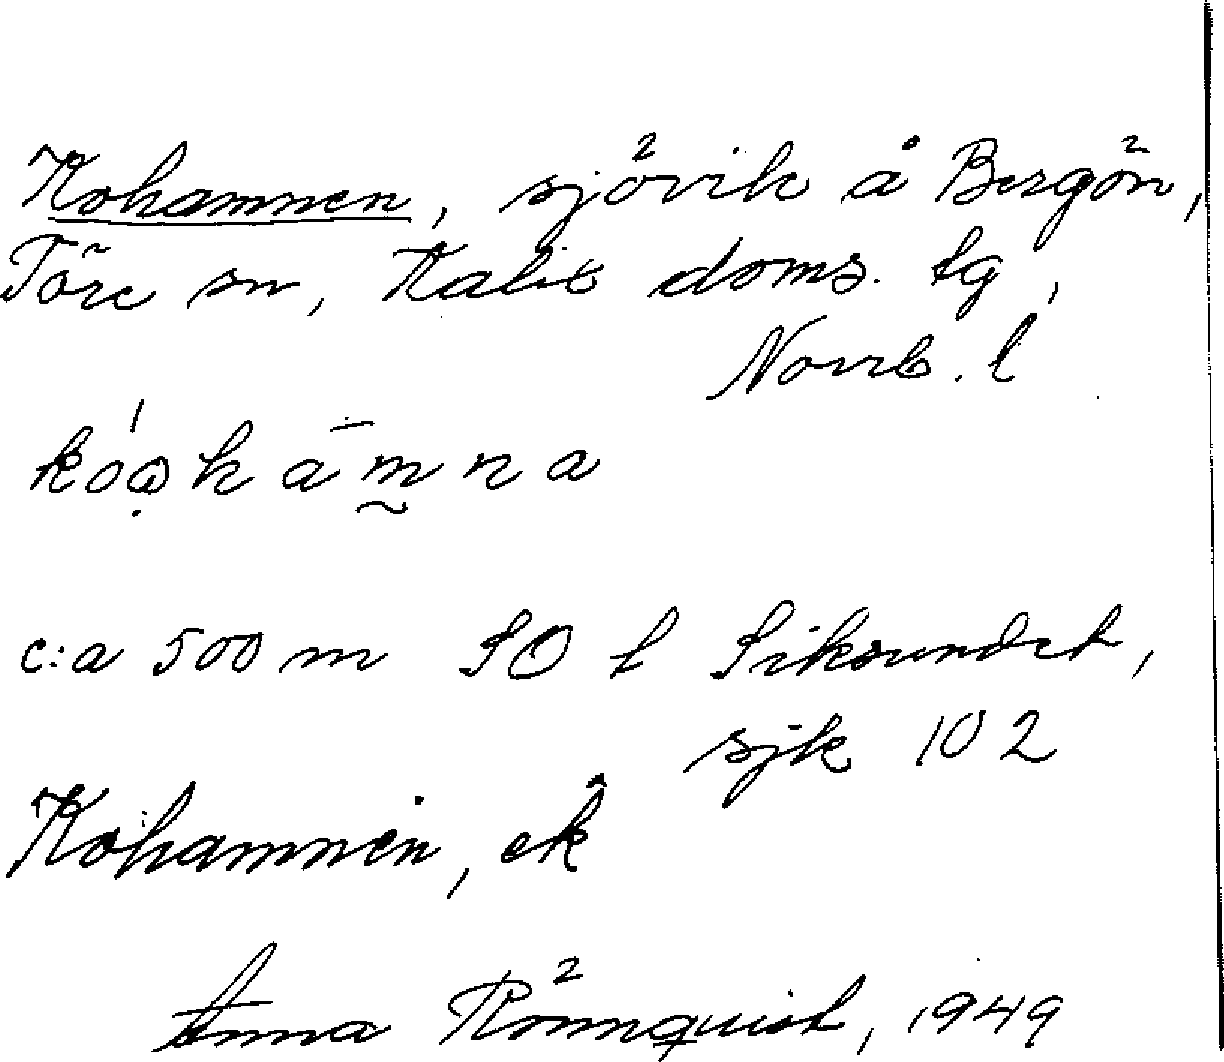 Kohamnen, sjövik å Bergön,
Töre sn, Kalix doms. tg,
Norrb. l
kóọhāmna
c:a 500 m SO t Siksundet,
sjk 102
Kohamnen, ek
Anna Rönnquist, 1949